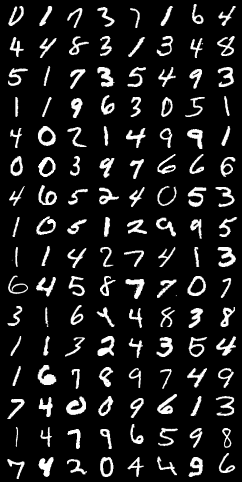 0 1 7 3 7 1 6 4
4 4 8 3 1 3 4 8
5 1 7 3 5 4 9 3
1 1 9 6 3 0 5 1
4 0 2 1 4 9 9 1
0 0 3 9 7 6 6 6
4 6 5 2 4 0 5 3
1 0 5 1 2 9 9 5
1 1 4 2 7 4 1 3
6 4 5 8 7 7 0 7
3 1 6 4 4 8 3 8
1 1 3 2 4 3 5 4
1 6 7 8 9 7 4 9
7 4 0 0 9 6 1 3
1 4 7 9 6 5 9 8
7 4 2 0 4 4 9 6